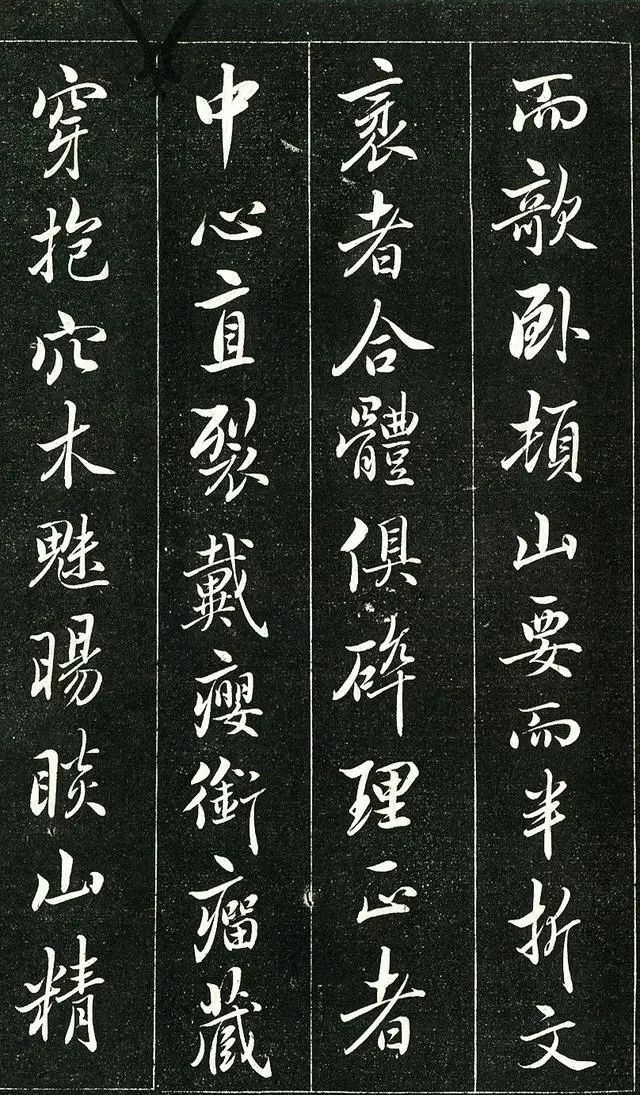 而欹臥頓山要而半折文
衺者合體俱碎理正者
中心直裂戴癭銜瘤藏
穿抱穴木魅睗睒山精